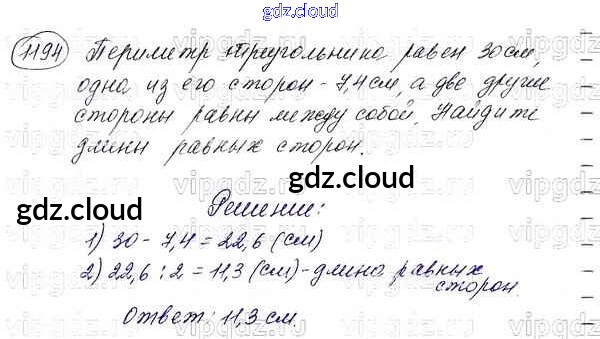 gdz.cloud
1194 Периметр треугольника равен 30 см,
одна из его сторон - 7,4 см, а две другие
стороны равны между собой. Найдите
длины равных сторон.
gdz.cloud
gdz.cloud
Решение:
1) 30 - 7,4 = 22,6 (см)
2) 22,6 : 2 = 11,3 (см) - длина равных
сторон.
Ответ: 11,3 см.